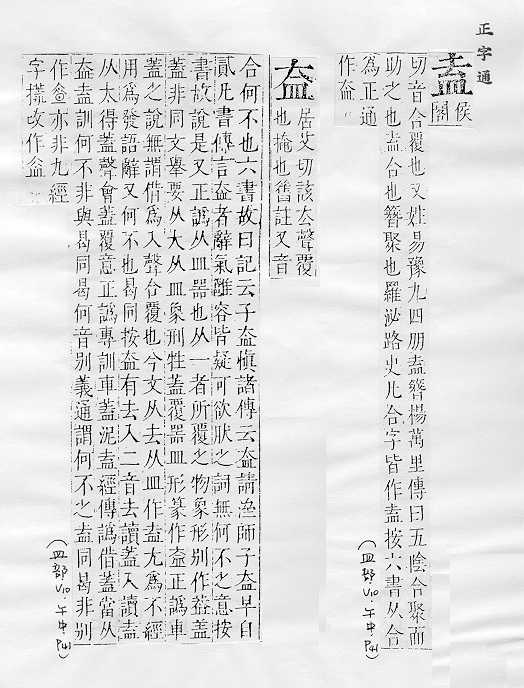 正字通
盍
侯閤
切音合覆也又姓易豫九四朋盍簪楊萬里傳曰五陰合聚而
助之也盍合也簪聚也羅泌路史凡合字皆作盍按六書从合
為正通
作盇
(皿部 V10.午中 P41)
盇
居艾切該去聲覆
也掩也舊註又音
合何不也六書故曰記云子盇愼諸傳云盇請濟師子盇早自
貳凡書傳言盇者辭氣雝容皆疑可欲狀之詞無何不之意按
書故說是又正譌从皿器也从一者所覆之物象形別作葢盖
蓋非同文舉要从大从皿象刑牲蓋覆器皿形篆作盇正譌車
蓋之說無謂借爲入聲合覆也今文从去从皿作盍尤爲不經
用爲發語辭又何不也曷同按盇有去入二音去讀蓋入讀盍
从太得蓋聲會蓋覆意正譌專訓車蓋泥盍經傳譌借蓋當从
盇盍訓何不非與曷同曷何音別義通謂何不之盍同曷非別
作 亦非九經
字㨾改作
(皿部 V10.午中 P41)